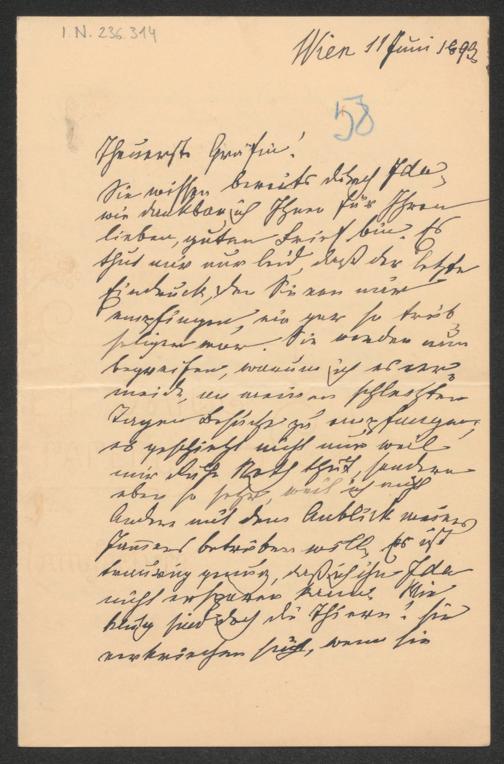 I.N. 236.314
Wien 11 Juni 1893
58
Theuerste Gräfin!
Sie wissen bereits durch Ida,
wie dankbar ich Ihnen für Ihren
lieben, guten Brief bin. Es
thut mir nur leid, daß der letzte
Eindruck, den Sie von mir
empfingen, ein gar so trüb
seliger war. Sie werden nun
begreifen, warum ich es ver
meide, an meinen schlechten
Tagen Besuche zu empfangen;
es geschieht nicht nur weil
mir Ruhe Noth thut, sondern
eben so sehr, weil ich nicht
Andere mit dem Anblick meines
Jammers betrüben will. Es ist
traurig genug, daß ich ihn Ida
nicht ersparen kann. Wie
klug sind doch die Thiere! sie
verkriechen sich, wenn sie